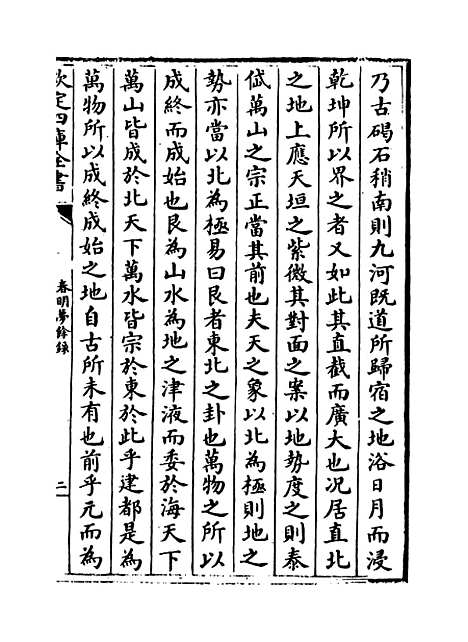 乃古碣石稍南則九河既道所歸宿之地浴日月而浸
乾坤所以界之者又如此其直截而廣大也况居直北
之地上應天垣之紫微其對面之案以地勢度之則泰
岱萬山之宗正當其前也夫天之象以北為極則地之
勢亦當以北為極易曰艮者東北之卦也萬物之所以
成終而成始也艮為山水為地之津液而委於海天下
萬山皆成於北天下萬水皆宗於東於此乎建都是為
萬物所以成終成始之地自古所未有也前乎元而為
欽定四庫全書
春明夢餘錄
二